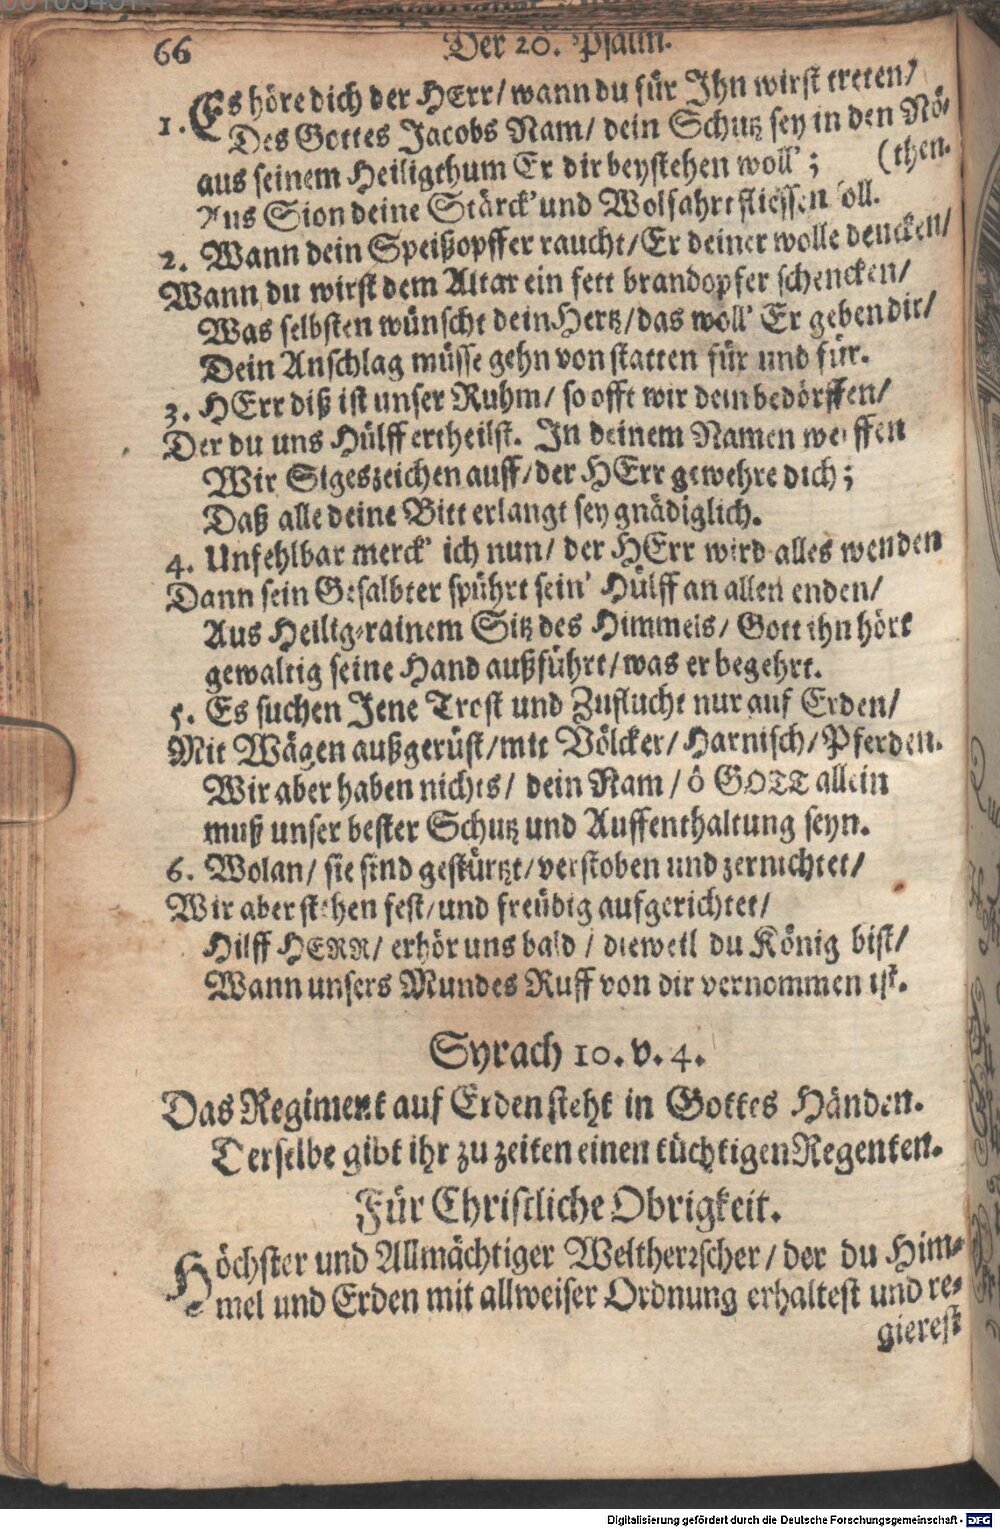 66 Der 20. Psalm.
1. Es höre dich der HErr/ wann du für Ihn wirst treten/
Des Gottes Jacobs Nam/ dein Schutz sey in den Nö-
aus seinem Heiligthum Er dir beystehen woll'; (then.
Aus Sion deine Stärck' und Wolfahrt fliessen soll.
2. Wann dein Speißopffer raucht/ Er deiner wolle dencken/
Wann du wirst dem Altar ein fett brandopfer schencken/
Was selbsten wünscht dein Hertz/ das woll' Er geben dir/
Dein Anschlag müsse gehn von statten für und für.
3. HErr diß ist unser Ruhm/ so offt wir dein bedörffen/
Der du uns Hülff ertheilst. In deinem Namen werffen
Wir Sigeszeichen auff/ der HErr gewehre dich;
Daß alle deine Bitt erlangt sey gnädiglich.
4. Unfehlbar merck' ich nun/ der HErr wird alles wenden
Dann sein Gesalbter spührt sein' Hülff an allen enden/
Aus Heilig-rainem Sitz des Himmels/ Gott ihn hört
gewaltig seine Hand außführt/ was er begehrt.
5. Es suchen Jene Trost und Zuflucht nur auf Erden/
Mit Wägen außgerüst/ mit Völcker/ Harnisch/ Pferden.
Wir aber haben nichts/ dein Nam/ ô GOTT allein
muß unser bester Schutz und Auffenthaltung seyn.
6. Wolan/ sie sind gestürtzt/ verstoben und zernichtet/
Wir aber stehen fest/ und freüdig aufgerichtet/
Hilff HERR/ erhör uns bald/ dieweil du König bist/
Wann unsers Mundes Ruff von dir vernommen ist.
Syrach 10. v. 4.
Das Regiment auf Erden steht in Gottes Händen.
Derselbe gibt ihr zu zeiten einen tüchtigen Regenten.
Für Christliche Obrigkeit.
Höchster und Allmächtiger Weltherrscher/ der du Him-
mel und Erden mit allweiser Ordnung erhaltest und re-
gierest
Digitalisierung gefördert durch die Deutsche Forschungsgemeinschaft - DFG